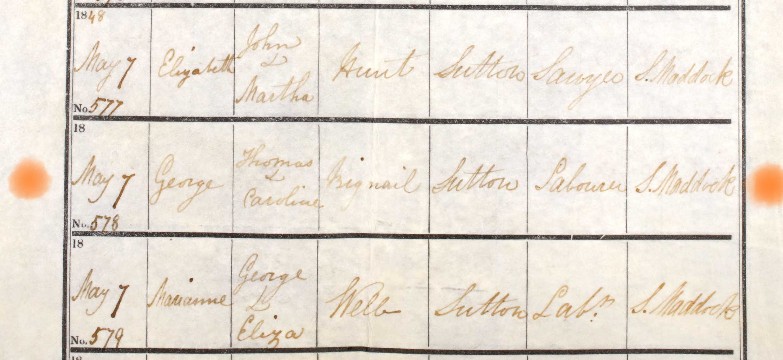 1848
May 7 Elizabeth John & Martha Hunt Sutton Sawyer S. Maddock
No. 577
18
May 7 George Thomas & Caroline Bignail Sutton Labourer S. Maddock
No. 578
18
May 7 Marianne George & Eliza Webb Sutton Labr. S. Maddock
No. 579
18